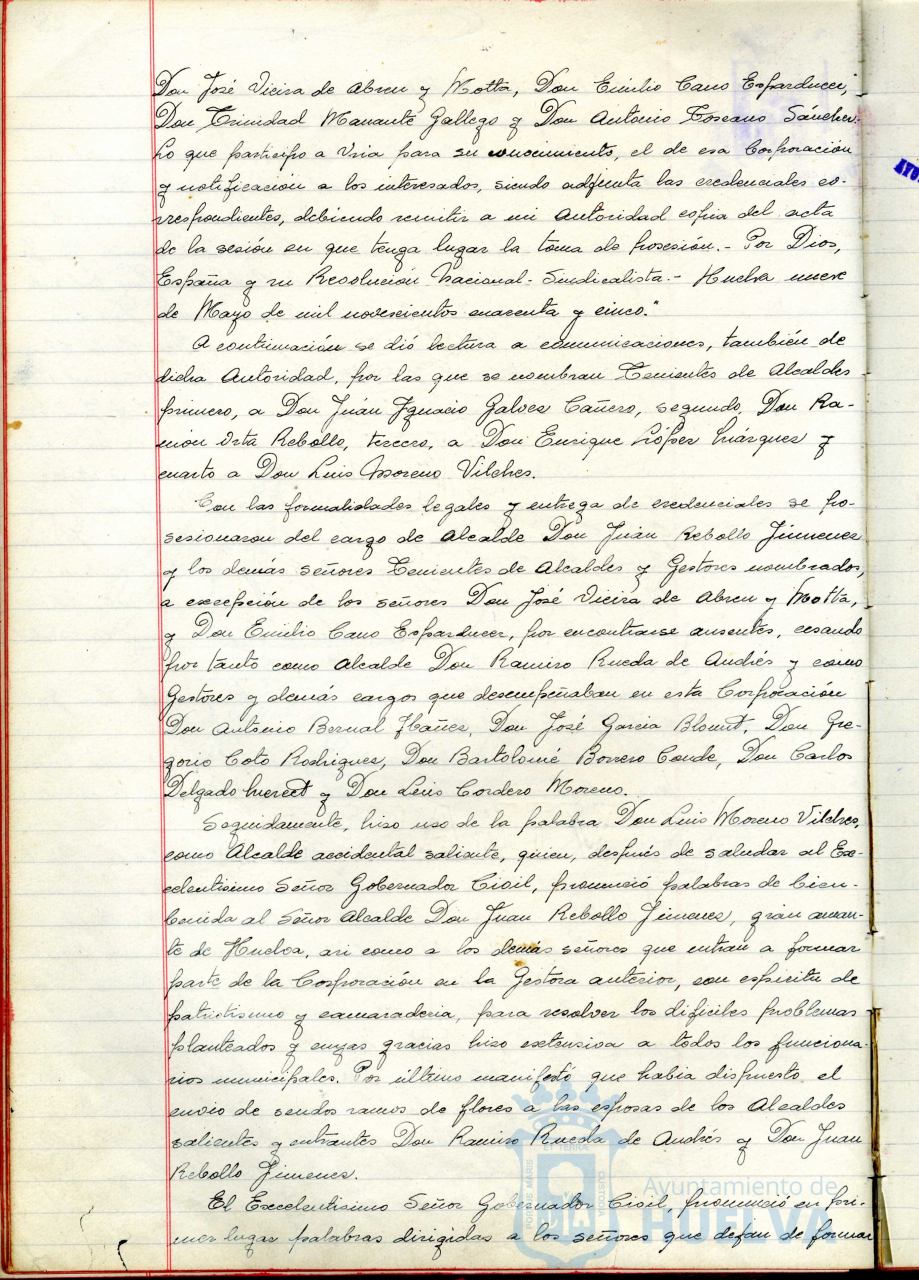 Don José Vieira de Abreu y Motta, Don Emilio Cano Esparducer,
Don Trinidad Manante Gallego y Don Antonio Toscano Sánchez.
Lo que participo a Vria para su conocimiento, el de esa Corporación
y notificación a los interesados, siendo adjunta las credenciales co-
rrespondientes, debiendo remitir a mi Autoridad copia del acta
de la sesión en que tenga lugar la toma de posesión.- Por Dios,
España y su Revolución Nacional-Sindicalista.- Huelva nueve
de Mayo de mil novescientos cuarenta y cinco."
A continuación se dió lectura a comunicaciones, también de
dicha Autoridad, por las que se nombran Tenientes de Alcaldes
primero, a Don Juán Ygnacio Galves Cañero, segundo, Don Ra-
món Urta Rebollo, tercero, a Don Enrique López Márquez y
cuarto a Don Luis Moreno Vilches.
Con las formalidades legales y entrega de credenciales se po-
sesionaron del cargo de Alcalde Don Juán Rebollo Jimenez
y los demás señores Tenientes de Alcaldes y Gestores nombrados,
a excepción de los señores Don José Vieira de Abreu y Motta,
y Don Emilio Cano Esparducer, por encontrarse ausentes, cesando
por tanto como Alcalde Don Ramiro Rueda de Andrés y como
Gestores y demás cargos que desempeñaban en esta Corporación
Don Antonio Bernal Ybañez, Don José Garcia Blount, Don Gre-
gorio Coto Rodriguez, Don Bartolomé Borrero Conde, Don Carlos
Delgado y Don Luis Cordero Moreno.
Seguidamente, hiso uso de la palabra Don Luis Moreno Vilches,
como Alcalde accidental saliente, quien, después de saludar al Exc-
celentisimo Señor Gobernador Civil, pronunció palabras de bien-
benida al Señor Alcalde Don Juan Rebollo Jimenez, gran aman-
te de Huelva, asi como a los demás señores que entran a formar
parte de la Corporación en la Gestora anterior, con espiritu de
patriotismo y camaraderia, para resolver los dificiles problemas
planteados y cuyas gracias hiso extensiva a todos los funciona-
rios municipales. Por último manifestó que habia dispuesto el
envio de sendos ramos de flores a las esposas de los Alcaldes
salientes y entrantes Don Ramiro Rueda de Andrés y Don Juan
Rebollo Jimenez.
El Excelentisimo Señor Gobernador Civil, pronunció en pri-
mer lugar palabras dirigidas a los señores que dejan de formar
PORTUS MARIS ET TERRAE CUSTODIA
Ayuntamiento de
HUELVA